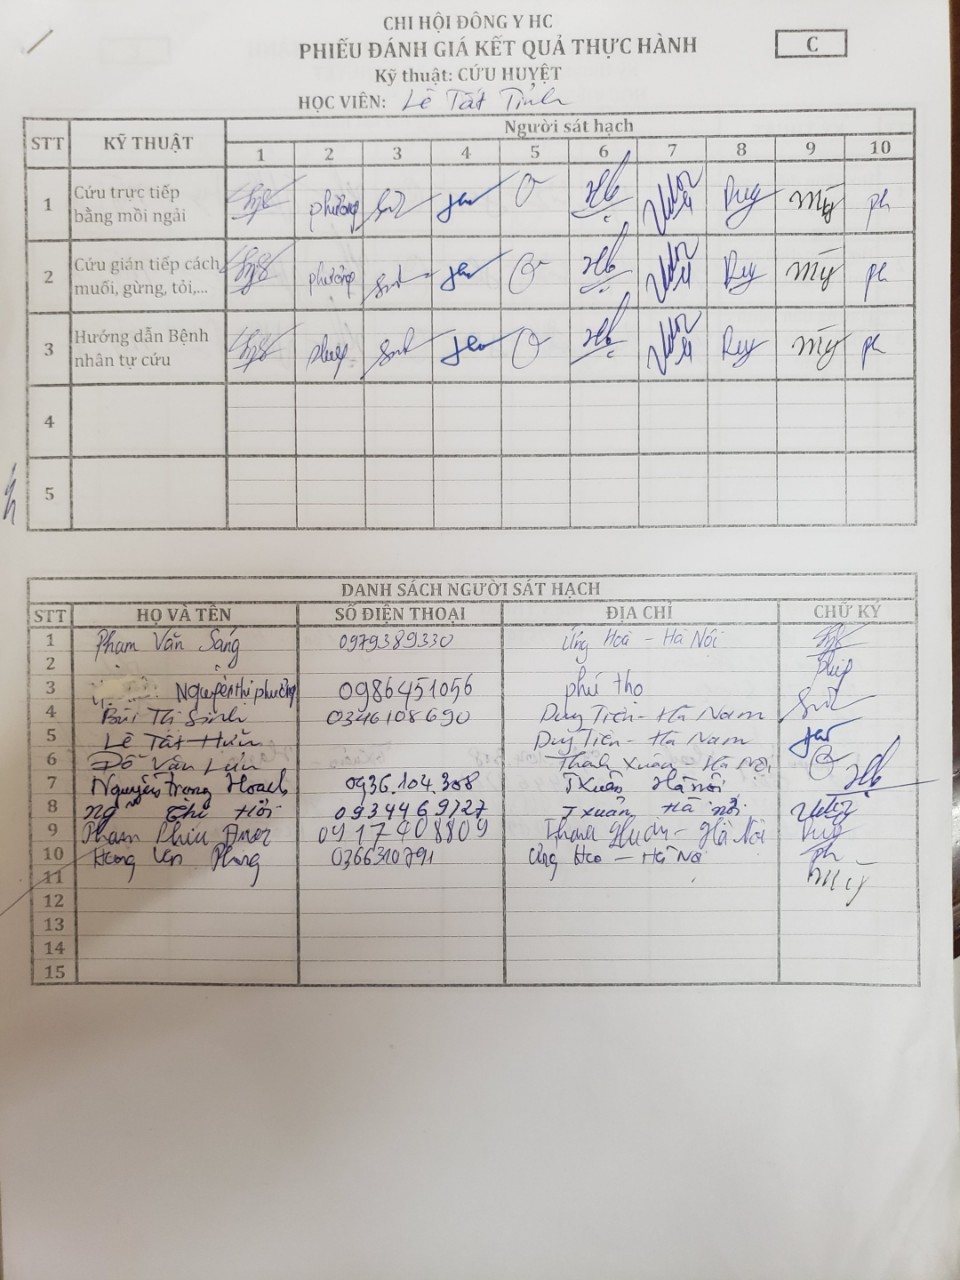 CHI HỘI ĐÔNG Y HC
PHIẾU ĐÁNH GIÁ KẾT QUẢ THỰC HÀNH
C
Kỹ thuật: CỨU HUYỆT
HỌC VIÊN: Lê Tất Tỉnh
STT KỸ THUẬT Người sát hạch
1 2 3 4 5 6 7 8 9 10
1 Cứu trực tiếp bằng mồi ngải phương Mỹ ph
2 Cứu gián tiếp cách muối, gừng, tỏi,... phương Mỹ ph
3 Hướng dẫn Bệnh nhân tự cứu Mỹ ph
4
5
DANH SÁCH NGƯỜI SÁT HẠCH
STT HỌ VÀ TÊN SỐ ĐIỆN THOẠI ĐỊA CHỈ CHỮ KÝ
1 Phạm Văn Sáng 0979389330 Ứng Hoà - Hà Nội
2
3 Nguyễn thị phương 0986451056 phú thọ
4 Bùi Thị Sinh 0346108690 Duy Tiên - Hà Nam
5 Lê Tất Duy Tiên - Hà Nam
6 Đỗ Văn Thanh Xuân Hà Nội
7 Nguyễn Trọng Hoạch 0936.104.308 TXuân Hà nội
8 Thị 0934469727 T xuân Hà nội
9 Phạm 0917408809 Thanh Xuân - Hà Nội
10 Phong 0366310791 Ứng Hoà - Hà Nội ph
11
12
13
14
15